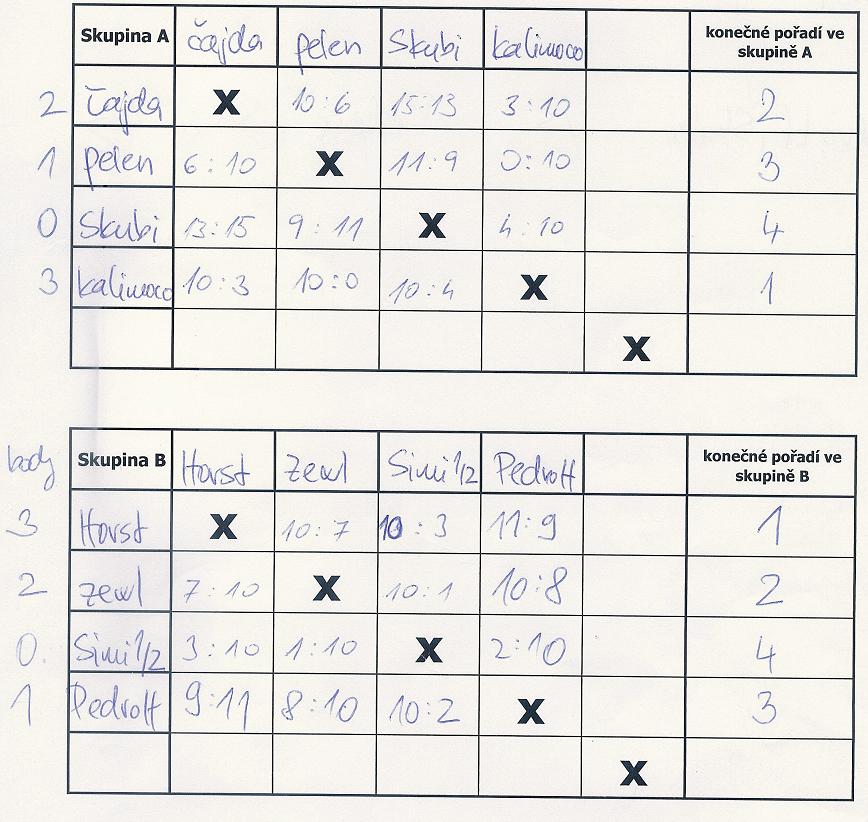 Skupina A čajda pelen Skubi kalimoco konečné pořadí ve skupině A
2 Čajda X 10:6 15:13 3:10 2
1 pelen 6:10 X 11:9 0:10 3
0 Skubi 13:15 9:11 X 4:10 4
3 kalimoco 10:3 10:0 10:4 X 1
X
body Skupina B Horst zewl Simi 1/2 Pedroff konečné pořadí ve skupině B
3 Horst X 10:7 10:3 11:9 1
2 zewl 7:10 X 10:1 10:8 2
0. Simi 1/2 3:10 1:10 X 2:10 4
1 Pedroff 9:11 8:10 10:2 X 3
X